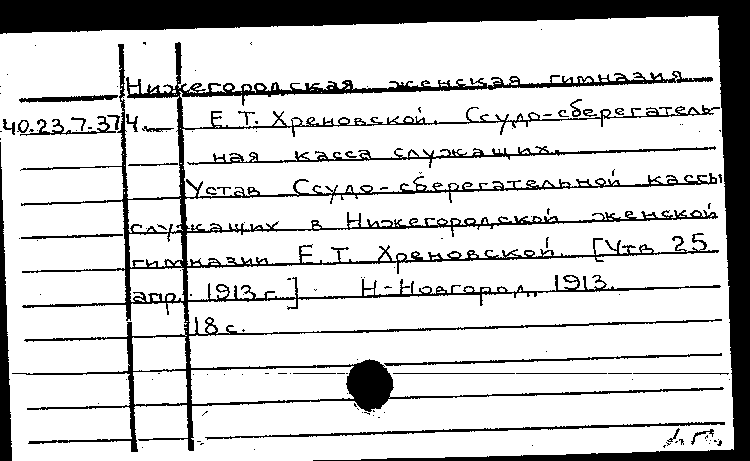 Нижегородская женская гимназия
40.23.7.374. Е. Т. Хреновской. Ссудо-сберегатель-
ная касса служащих.
Устав Ссудо-сберегательной кассы
служащих в Нижегородской женской
гимназии Е. Т. Хреновской. [Утв. 25
апр. 1913 г.] Н-Новгород, 1913.
18 с.